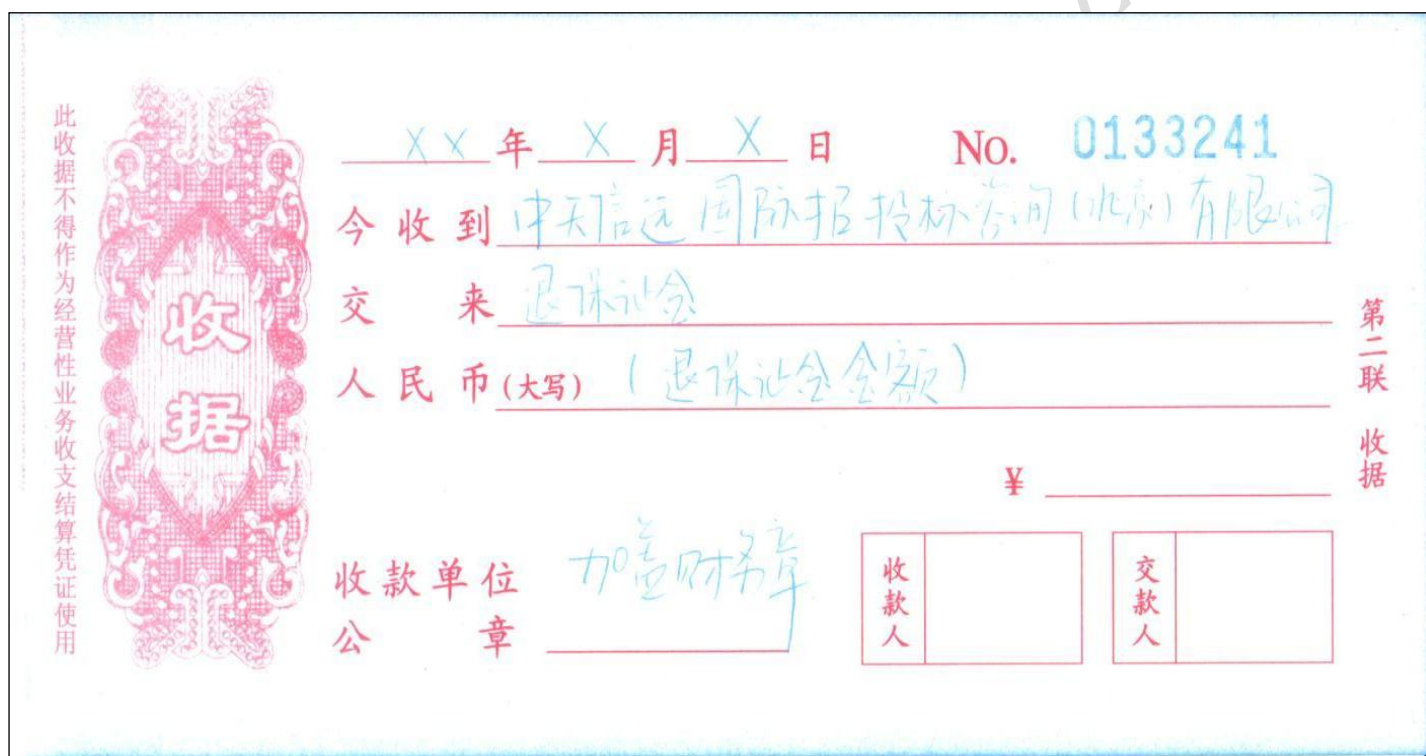 此收据不得作为经营性业务收支结算凭证使用
收据
XX年X月X日 No. 0133241
今收到 中天信远国际招投标咨询(北京)有限公司
交来 退保证金
人民币(大写) (退保证金金额)
¥
第二联 收据
收款单位 加盖财务章
公章
收款人
交款人